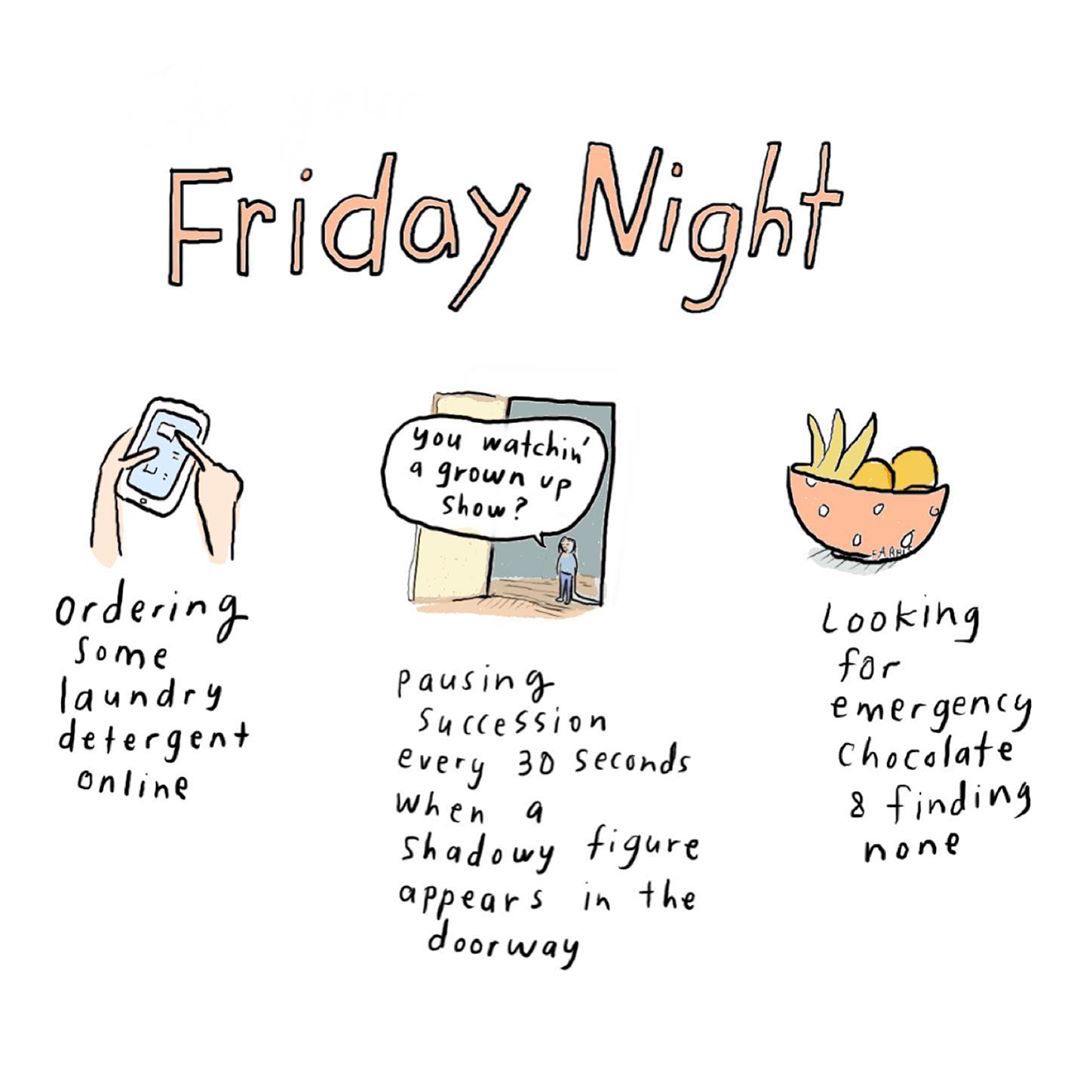 Friday Night
you watchin'
a grown up
show?
FARRIS
ordering
some
laundry
detergent
online
pausing
succession
every 30 seconds
when a
shadowy figure
appears in the
doorway
Looking
for
emergency
chocolate
& finding
none